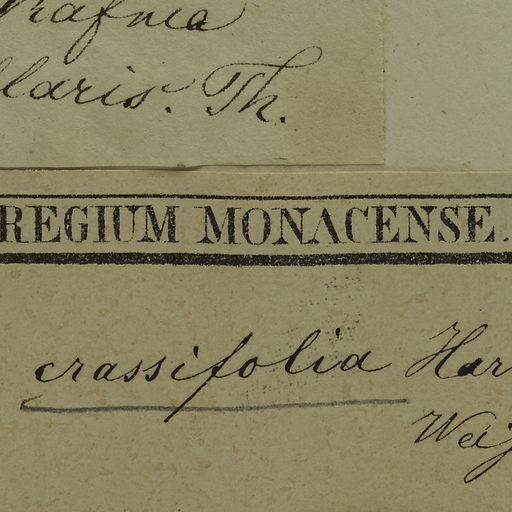 Rafnia
llaris. Th.
REGIUM MONACENSE.
crassifolia Har